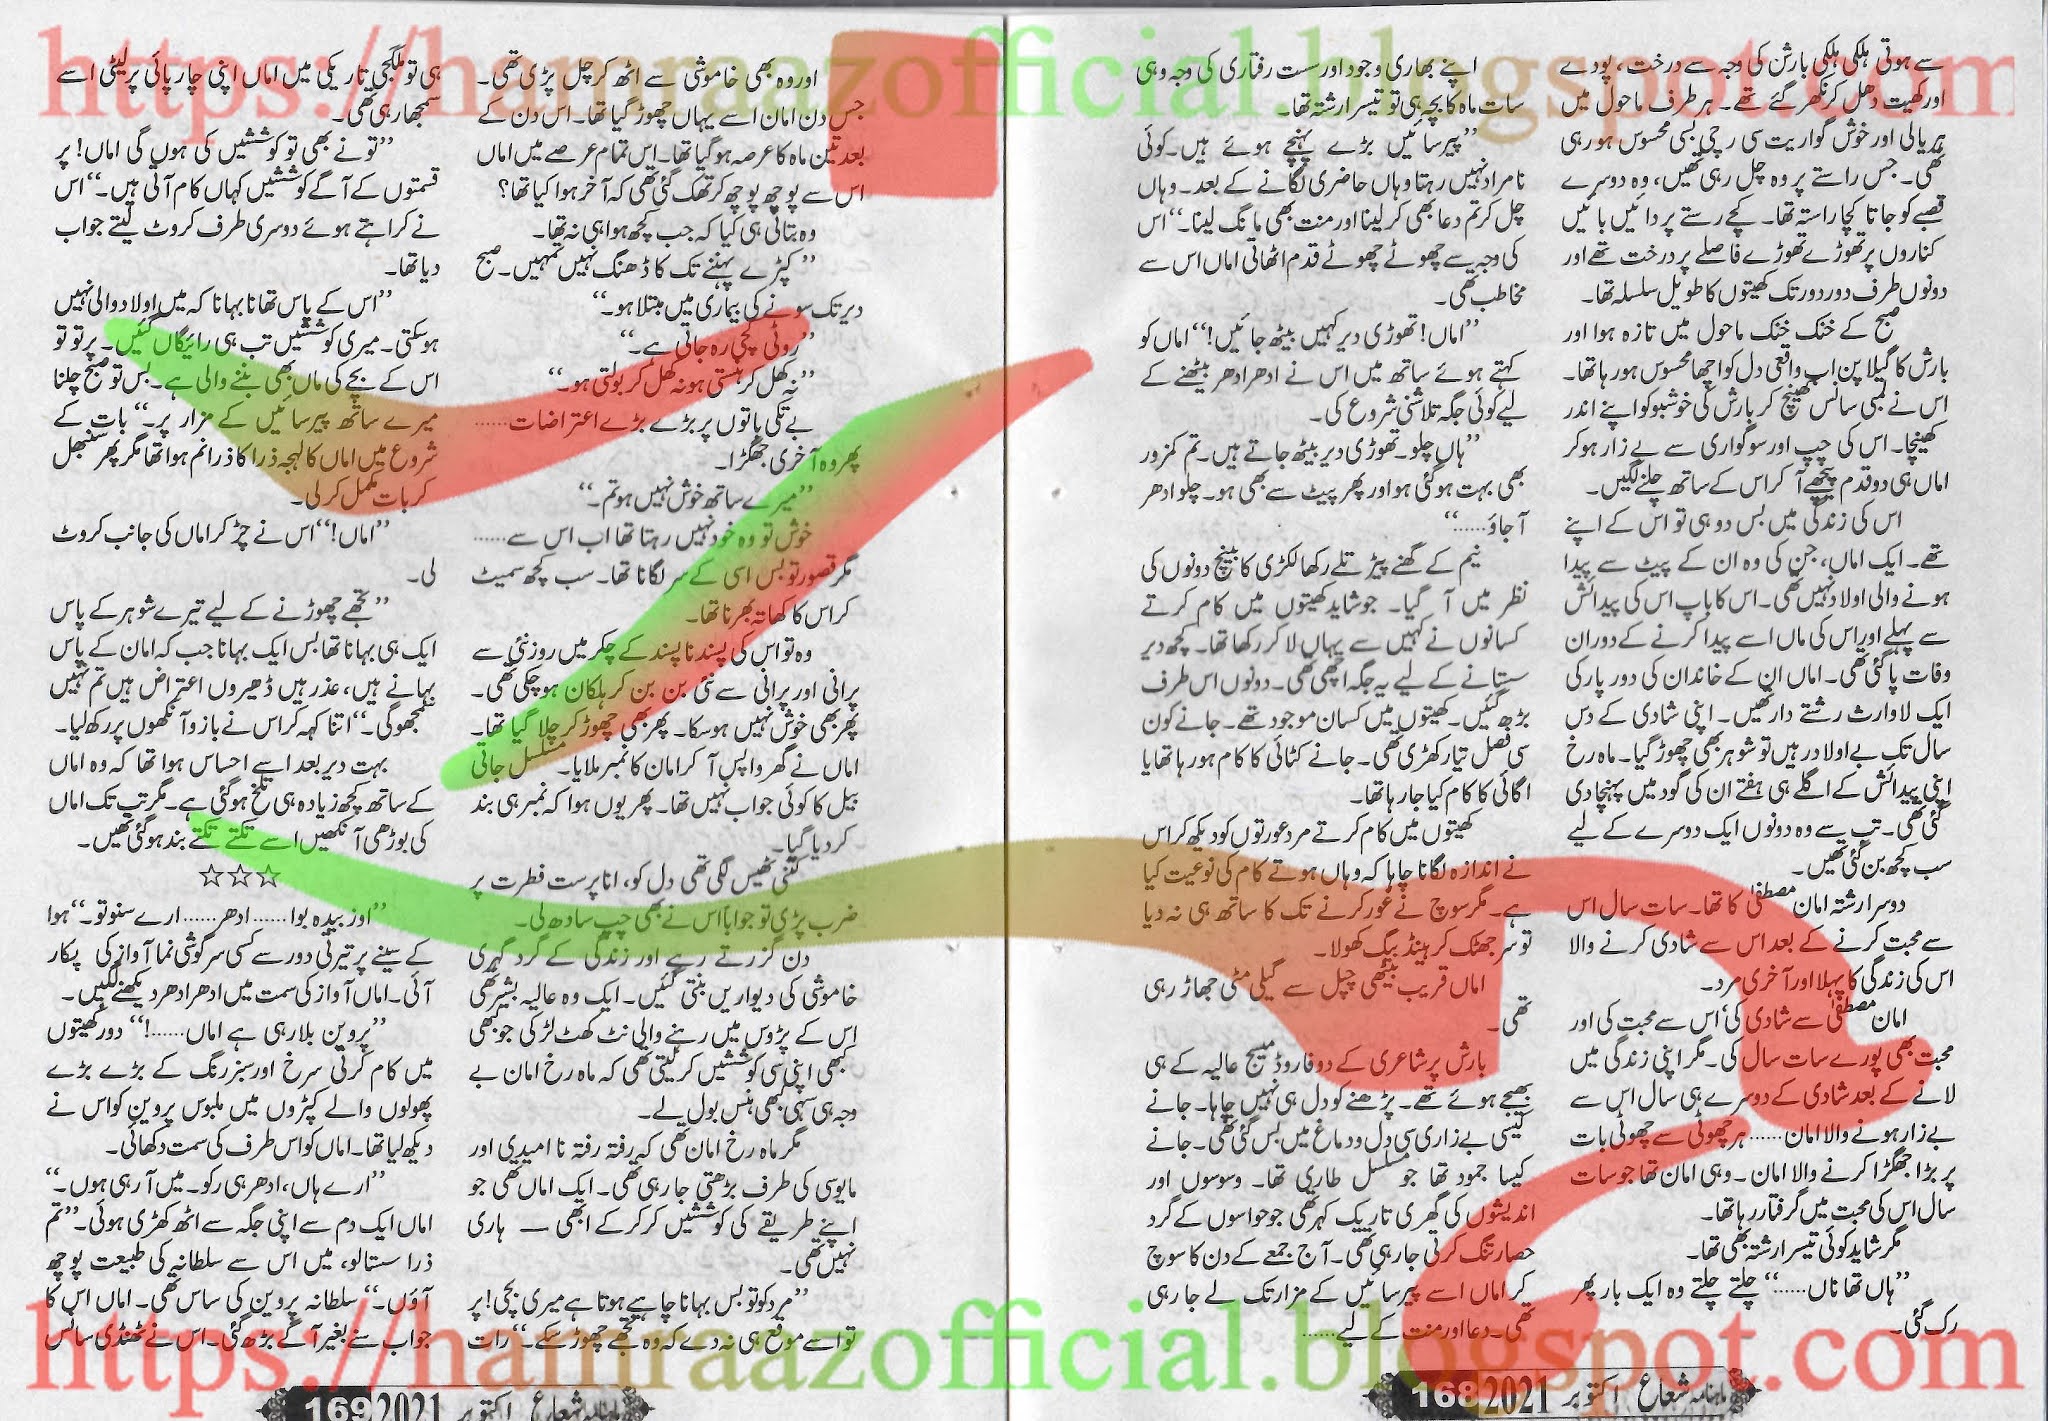 https://hamraazofficial.blogspot.com
سے ہوتی ہلکی ہلکی بارش کی وجہ سے درخت، پودے
اور کھیت دھل کر نکھر گئے تھے۔ ہر طرف ماحول میں
ہریالی اور خوش گواریت سی رچی بسی محسوس ہو رہی
تھی۔ جس راستے پر وہ چل رہی تھیں، وہ دوسرے
قصبے کو جاتا کچا راستہ تھا۔ کچے رستے پر دائیں بائیں
کناروں پر تھوڑے تھوڑے فاصلے پر درخت تھے اور
دونوں طرف دور دور تک کھیتوں کا طویل سلسلہ تھا۔
صبح کے خنک خنک ماحول میں تازہ ہوا اور
بارش کا گیلا پن اب واقعی دل کو اچھا محسوس ہو رہا تھا۔
اس نے لمبی سانس کھینچ کر بارش کی خوشبو کو اپنے اندر
کھینچا۔ اس کی چپ اور سوگواری سے بے زار ہو کر
اماں ہی دو قدم پیچھے آ کر اس کے ساتھ چلنے لگیں۔
اس کی زندگی میں بس دو ہی تو اس کے اپنے
تھے۔ ایک اماں، جن کی وہ ان کے پیٹ سے پیدا
ہونے والی اولاد نہیں تھی۔ اس کا باپ اس کی پیدائش
سے پہلے اور اس کی ماں اسے پیدا کرنے کے دوران
وفات پا گئی تھی۔ اماں ان کے خاندان کی دور پار کی
ایک لاوارث رشتے دار تھیں۔ اپنی شادی کے دس
سال تک بے اولاد رہیں تو شوہر بھی چھوڑ گیا۔ ماہ رخ
اپنی پیدائش کے اگلے ہی ہفتے ان کی گود میں پہنچا دی
گئی تھی۔ تب سے وہ دونوں ایک دوسرے کے لیے
سب کچھ بن گئی تھیں۔
دوسرا رشتہ امان مصطفیٰ کا تھا۔ سات سال اس
سے محبت کرنے کے بعد اس سے شادی کرنے والا
اس کی زندگی کا پہلا اور آخری مرد۔
امان مصطفیٰ سے شادی کی‘ اس سے محبت کی اور
محبت بھی پورے سات سال کی۔ مگر اپنی زندگی میں
لانے کے بعد شادی کے دوسرے ہی سال اس سے
بے زار ہونے والا امان...... ہر چھوٹی سے چھوٹی بات
پر بڑا جھگڑا کرنے والا امان۔ وہی امان تھا جو سات
سال اس کی محبت میں گرفتار رہا تھا۔
مگر شاید کوئی تیسرا رشتہ بھی تھا۔
’’ہاں تھا ناں......‘‘ چلتے چلتے وہ ایک بار پھر
رک گئی۔
اپنے بھاری وجود اور سست رفتاری کی وجہ وہی
سات ماہ کا بچہ ہی تو تیسرا رشتہ تھا۔
’’پیر سائیں بڑے پہنچے ہوئے ہیں۔ کوئی
نامراد نہیں رہتا وہاں حاضری لگانے کے بعد۔ وہاں
چل کر تم دعا بھی کر لینا اور منت بھی مانگ لینا۔‘‘ اس
کی وجہ سے چھوٹے چھوٹے قدم اٹھاتی اماں اس سے
مخاطب تھی۔
’’اماں! تھوڑی دیر کہیں بیٹھ جائیں!‘‘ اماں کو
کہتے ہوئے ساتھ میں اس نے ادھر ادھر بیٹھنے کے
لیے کوئی جگہ تلاشنی شروع کی۔
’’ہاں چلو۔ تھوڑی دیر بیٹھ جاتے ہیں۔ تم کمزور
بھی بہت ہو گئی ہو اور پھر پیٹ سے بھی ہو۔ چلو ادھر
آ جاؤ......‘‘
نیم کے گھنے پیڑ تلے رکھا لکڑی کا بینچ دونوں کی
نظر میں آ گیا۔ جو شاید کھیتوں میں کام کرتے
کسانوں نے کہیں سے یہاں لا کر رکھا تھا۔ کچھ دیر
سستانے کے لیے یہ جگہ اچھی تھی۔ دونوں اس طرف
بڑھ گئیں۔ کھیتوں میں کسان موجود تھے۔ جانے کون
سی فصل تیار کھڑی تھی۔ جانے کٹائی کا کام ہو رہا تھا یا
اگائی کا کام کیا جا رہا تھا۔
کھیتوں میں کام کرتے مرد عورتوں کو دیکھ کر اس
نے اندازہ لگانا چاہا کہ وہاں ہوتے کام کی نوعیت کیا
ہے۔ مگر سوچ نے غور کرنے تک کا ساتھ ہی نہ دیا
تو سر جھٹک کر ہینڈ بیگ کھولا۔
اماں قریب بیٹھی چپل سے گیلی مٹی جھاڑ رہی
تھی۔
بارش پر شاعری کے دو فارورڈ میسج عالیہ کے ہی
بھیجے ہوئے تھے۔ پڑھنے کو دل ہی نہیں چاہا۔ جانے
کیسی بے زاری سی دل و دماغ میں بس گئی تھی۔ جانے
کیسا جمود تھا جو مسلسل طاری تھا۔ وسوسوں اور
اندیشوں کی گھری تاریک کہر تھی جو حواسوں کے گرد
حصار تنگ کرتی جا رہی تھی۔ آج جمعے کے دن کا سوچ
کر اماں اسے پیر سائیں کے مزار تک لے جا رہی
تھی۔ دعا اور منت کے لیے......
ماہنامہ شعاع اکتوبر 2021 168
اور وہ بھی خاموشی سے اٹھ کر چل پڑی تھی۔
جس دن امان اسے یہاں چھوڑ گیا تھا۔ اس دن کے
بعد تین ماہ کا عرصہ ہو گیا تھا۔ اس تمام عرصے میں اماں
اس سے پوچھ پوچھ کر تھک گئی تھی کہ آخر ہوا کیا تھا؟
وہ بتاتی ہی کیا کہ جب کچھ ہوا ہی نہ تھا۔
’’کپڑے پہننے تک کا ڈھنگ نہیں تمہیں۔ صبح
دیر تک سونے کی بیماری میں مبتلا ہو۔‘‘
’’روٹی کچی رہ جاتی ہے۔‘‘
’’نہ کھل کر ہنستی ہو نہ کھل کر بولتی ہو۔‘‘
بے تکی باتوں پر بڑے بڑے اعتراضات......
پھر وہ آخری جھگڑا۔
’’میرے ساتھ خوش نہیں ہو تم۔‘‘
خوش تو وہ خود نہیں رہتا تھا اب اس سے......
مگر قصور تو بس اسی کے سر لگانا تھا۔ سب کچھ سمیٹ
کر اس کا کھاتہ بھرنا تھا۔
وہ تو اس کی پسند ناپسند کے چکر میں روز نئی سے
پرانی اور پرانی سے نئی بن بن کر ہلکان ہو چکی تھی۔
پھر بھی خوش نہیں ہو سکا۔ پھر بھی چھوڑ کر چلا گیا تھا۔
اماں نے گھر واپس آ کر امان کا نمبر ملایا۔ مسلسل جاتی
بیل کا کوئی جواب نہیں تھا۔ پھر یوں ہوا کہ نمبر ہی بند
کر دیا گیا۔
کتنی ٹھیس لگی تھی دل کو، انا پرست فطرت پر
ضرب پڑی تو جواباً اس نے بھی چپ سادھ لی۔
دن گزرتے رہے اور زندگی کے گرد گہری
خاموشی کی دیواریں بنتی گئیں۔ ایک وہ عالیہ بشیر تھی
اس کے پڑوس میں رہنے والی نٹ کھٹ لڑکی جو بھی
کبھی اپنی سی کوششیں کر لیتی تھی کہ ماہ رخ امان بے
وجہ ہی سہی کبھی ہنس بول لے۔
مگر ماہ رخ امان تھی کہ رفتہ رفتہ ناامیدی اور
مایوسی کی طرف بڑھتی جا رہی تھی۔ ایک اماں تھی جو
اپنے طریقے کی کوششیں کر کر کے ابھی — ہاری
نہیں تھی۔
’’مرد کو تو بس بہانا چاہیے ہوتا ہے میری بچی! پر
تو اسے موقع ہی نہ دے کہ وہ تجھے چھوڑ سکے۔‘‘ رات
ہی تو ملگجی تاریکی میں اماں اپنی چارپائی پر لیٹی اسے
سمجھا رہی تھی۔
’’تو نے بھی تو کوششیں کی ہوں گی اماں! پر
قسمتوں کے آگے کوششیں کہاں کام آتی ہیں۔‘‘ اس
نے کراہتے ہوئے دوسری طرف کروٹ لیتے جواب
دیا تھا۔
’’اس کے پاس تھا نا بہانا کہ میں اولاد والی نہیں
ہو سکتی۔ میری کوششیں تب ہی رائیگاں گئیں۔ پر تو تو
اس کے بچے کی ماں بھی بننے والی ہے۔ بس تو صبح چلنا
میرے ساتھ پیر سائیں کے مزار پر۔‘‘ بات کے
شروع میں اماں کا لہجہ ذرا کا ذرا نم ہوا تھا مگر پھر سنبھل
کر بات مکمل کر لی۔
’’اماں!‘‘ اس نے چڑ کر اماں کی جانب کروٹ
لی۔
’’تجھے چھوڑنے کے لیے تیرے شوہر کے پاس
ایک ہی بہانا تھا بس ایک بہانا جب کہ امان کے پاس
بہانے ہیں، عذر ہیں ڈھیروں اعتراض ہیں تم نہیں
سمجھو گی۔‘‘ اتنا کہہ کر اس نے بازو آنکھوں پر رکھ لیا۔
بہت دیر بعد اسے احساس ہوا تھا کہ وہ اماں
کے ساتھ کچھ زیادہ ہی تلخ ہو گئی ہے۔ مگر تب تک اماں
کی بوڑھی آنکھیں اسے تکتے تکتے بند ہو گئی تھیں۔
☆☆☆
’’او زبیدہ بوا...... ادھر...... ارے سنو تو۔‘‘ ہوا
کے سینے پر تیرتی دور سے کسی سرگوشی نما آواز کی پکار
آئی۔ اماں آواز کی سمت میں ادھر ادھر دیکھنے لگیں۔
’’پروین بلا رہی ہے اماں......!‘‘ دور کھیتوں
میں کام کرتی سرخ اور سبز رنگ کے بڑے بڑے
پھولوں والے کپڑوں میں ملبوس پروین کو اس نے
دیکھ لیا تھا۔ اماں کو اس طرف کی سمت دکھائی۔
’’ارے ہاں، ادھر ہی رکو۔ میں آ رہی ہوں۔‘‘
اماں ایک دم سے اپنی جگہ سے اٹھ کھڑی ہوئی۔ ’’تم
ذرا سستا لو، میں اس سے سلطانہ کی طبیعت پوچھ
آؤں۔‘‘ سلطانہ پروین کی ساس تھی۔ اماں اس کا
جواب سنے بغیر آگے بڑھ گئی۔ اس نے ٹھنڈی سانس
ماہنامہ شعاع اکتوبر 2021 169
https://hamraazofficial.blogspot.com